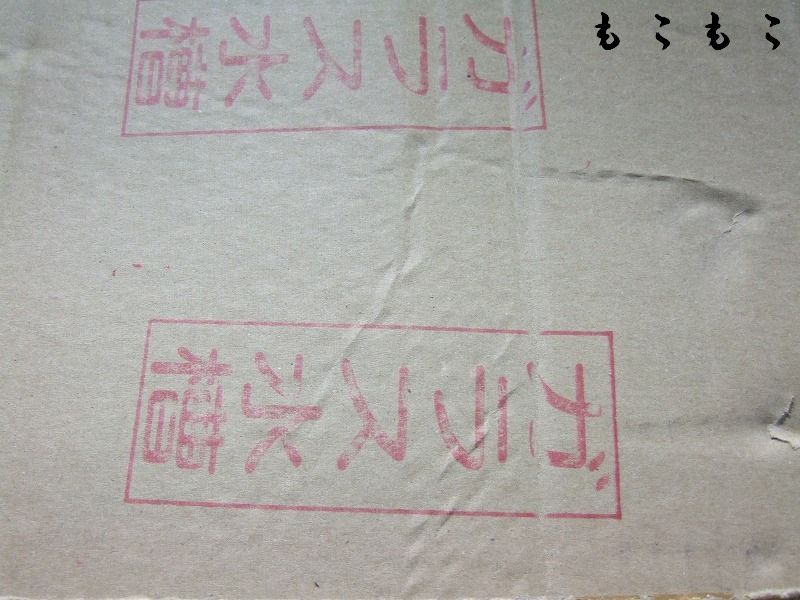 もこもこ
ガラス水槽
ガラス水槽